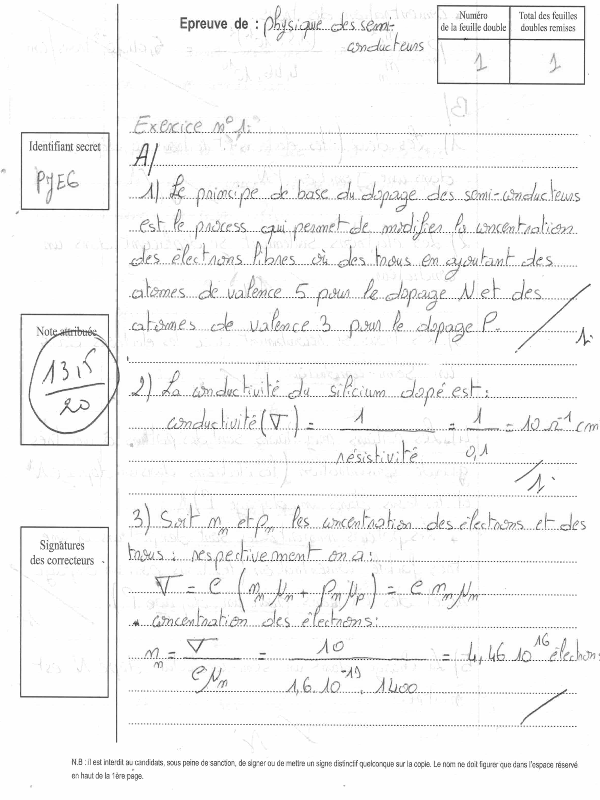 Epreuve de : physique des semi-
conducteurs
Numéro
de la feuille double
1
Total des feuilles
doubles remises
1
Identifiant secret
PJE6
Note attribuée
13,5
20
Signatures
des correcteurs
Exercice n° 1:
A/
1) Le principe de base du dopage des semi-conducteurs
est le process qui permet de modifier la concentration
des électrons libres ou des trous en ajoutant des
atomes de valence 5 pour le dopage N et des
atomes de valence 3 pour le dopage P.
1.
2) La conductivité du silicium dopé est :
conductivité (∇) = 1 / résistivité = 1 / 0,1 = 10 Ω⁻¹ cm
1.
3) Soit nₙ et pₙ les concentration des électrons et des
trous : respectivement on a :
∇ = e (nₙ μₙ + pₙ μₚ) = e nₙ μₙ
concentration des électrons:
nₙ = ∇ / e μₙ = 10 / 1,6.10⁻¹⁹ . 1400 = 4,46 10¹⁶ électrons
N.B : il est interdit au candidats, sous peine de sanction, de signer ou de mettre un signe distinctif quelconque sur la copie. Le nom ne doit figurer que dans l'espace réservé
en haut de la 1ère page.